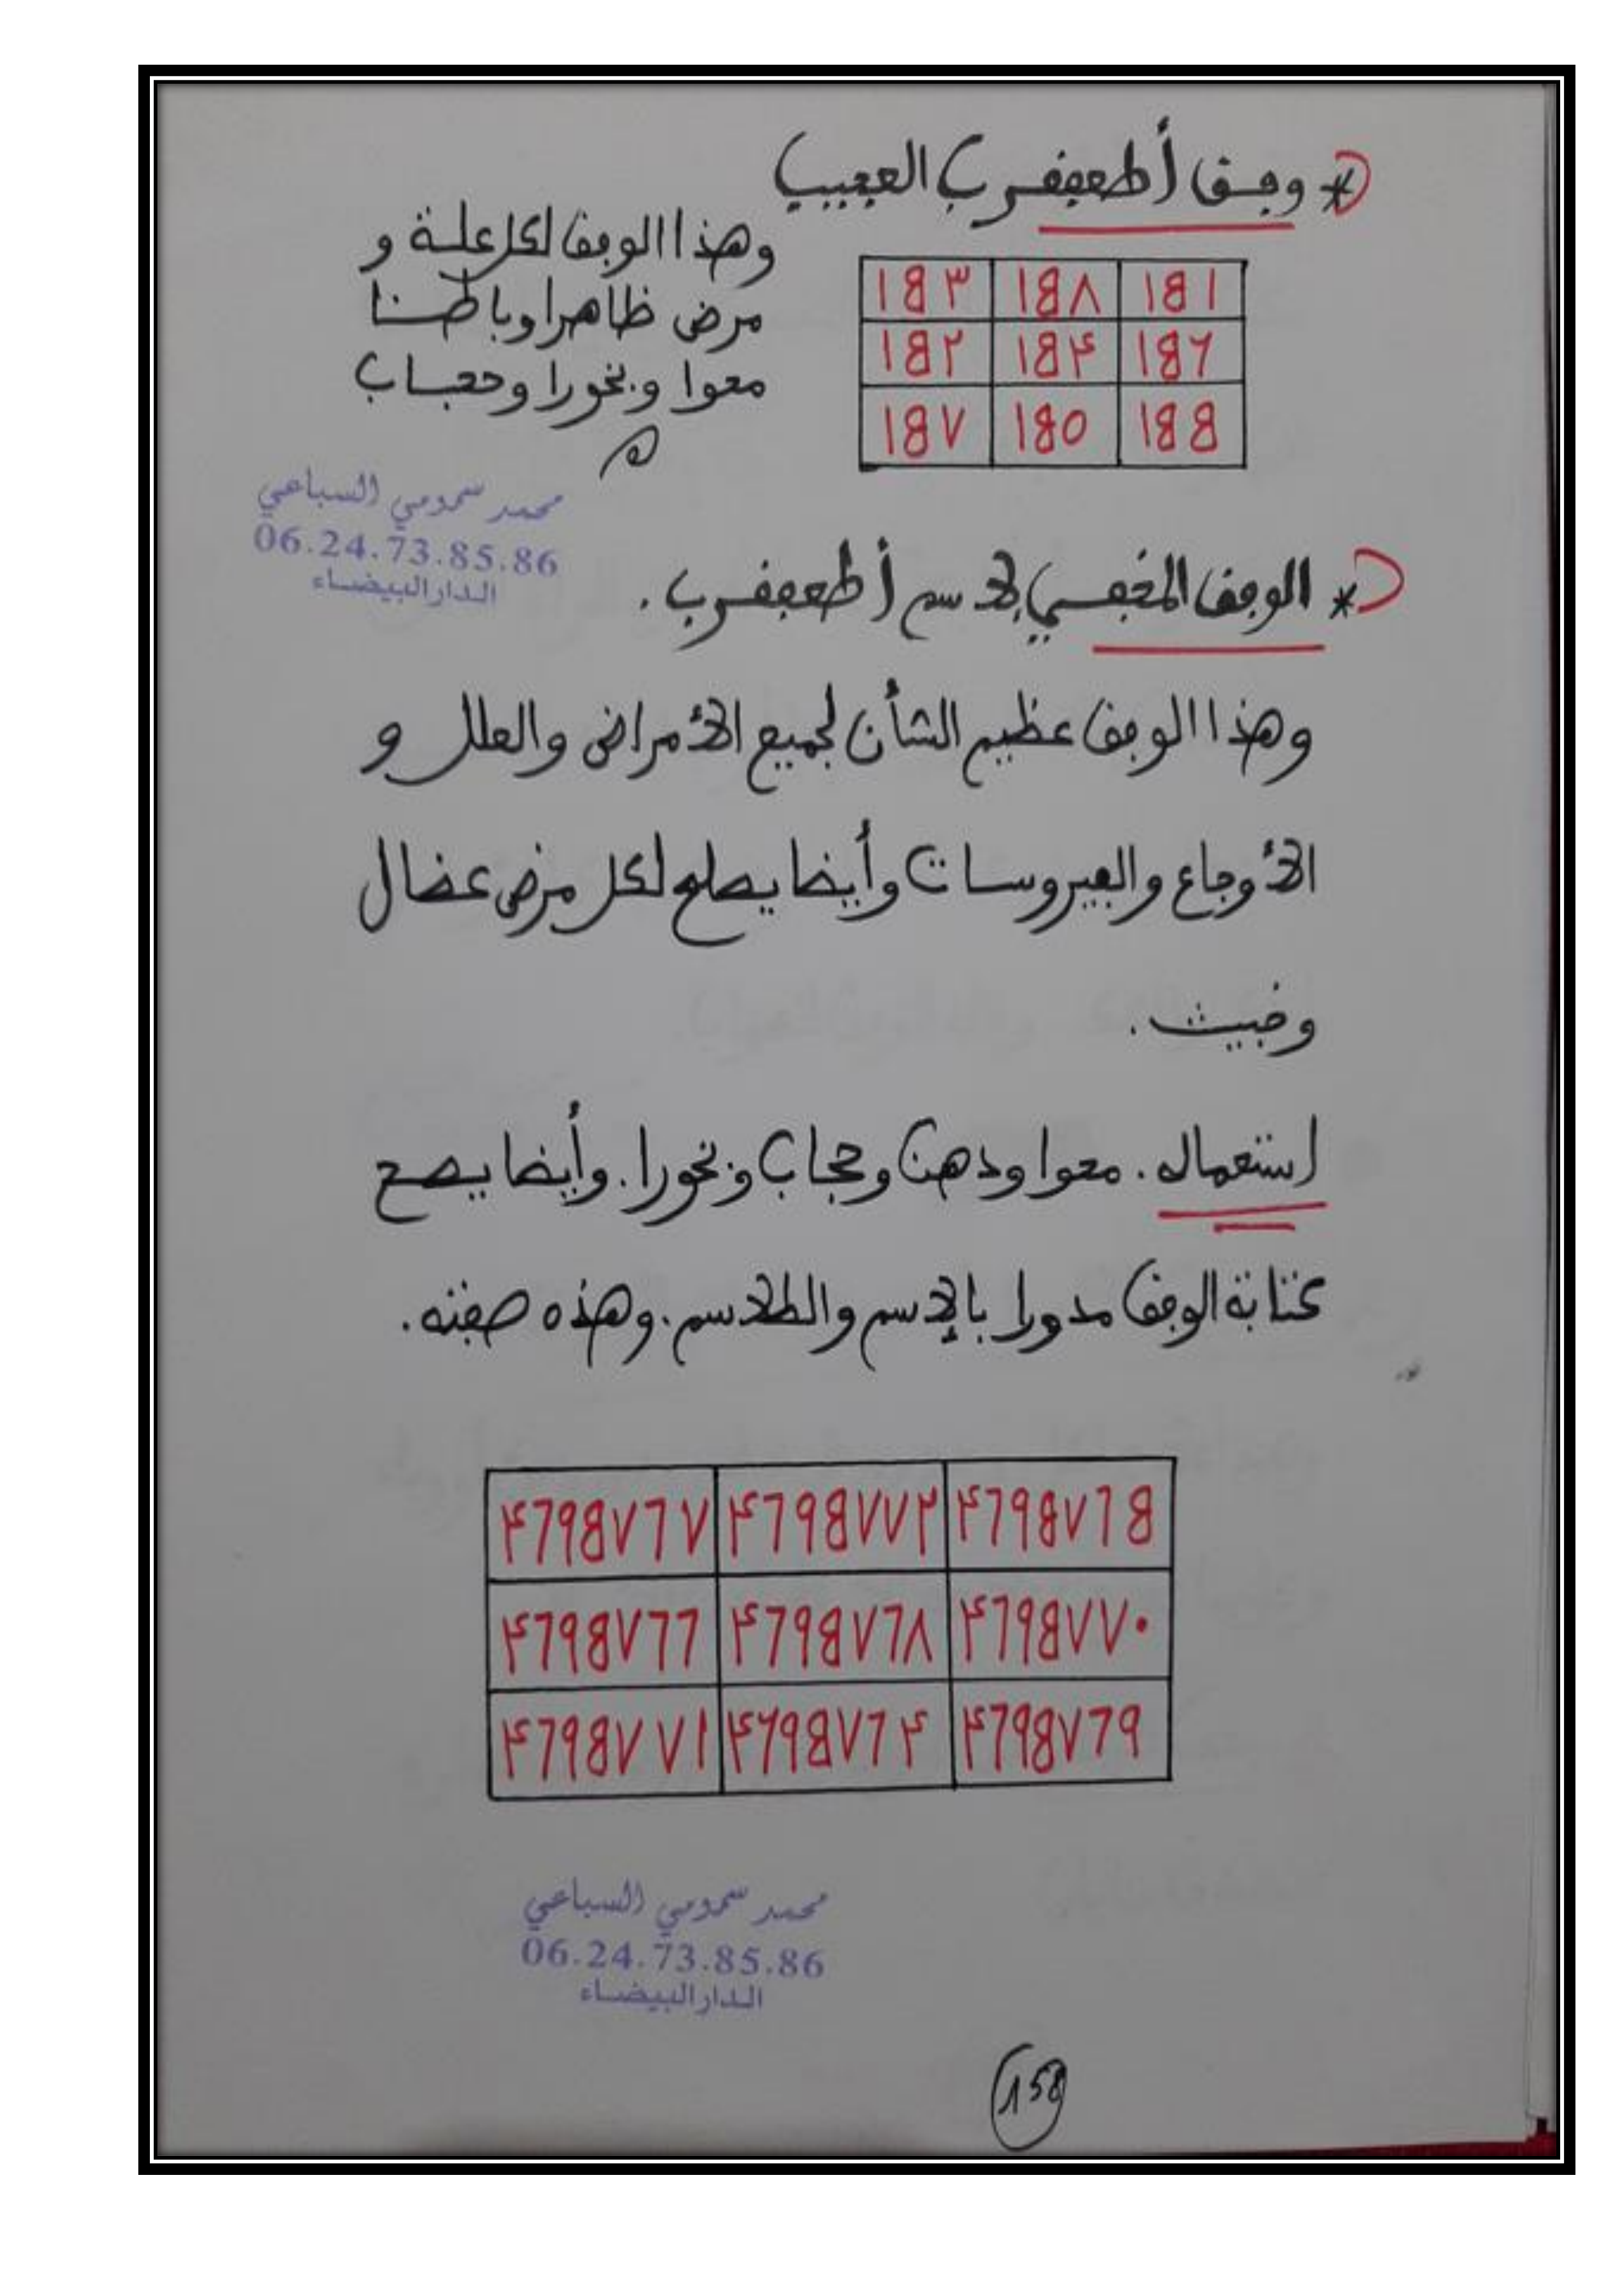 * وفق أطعففرب العجيب
وهذا الوفق لكل علة و
مرض ظاهرا وباطنا
محوا وبخورا وحجاب
١B٣ ١B٨ ١B١
١B٢ ١B۴ ١B٦
١B٧ ١B٥ ١BB
محمد سمومي السباعي
06.24.73.85.86
الدار البيضاء
* الوفق المخفي لإسم أطعففرب.
وهذا الوفق عظيم الشأن لجميع الأمراض والعلل و
الأوجاع والفيروسات وأيضا يصلح لكل مرض عضال
وخبيث.
إستعماله. محوا ودهنا وحجاب وبخورا. وأيضا يصح
كتابة الوفق مدورا بالإسم والطلاسم. وهذه صفته.
۴٦٩B٧٦٧ ۴٦٩B٧٧٢ ۴٦٩B٧٦B
۴٦٩B٧٦٦ ۴٦٩B٧٦٨ ۴٦٩B٧٧٠
۴٦٩B٧٧١ ۴٦٩B٧٦۴ ۴٦٩B٧٦٩
محمد سمومي السباعي
06.24.73.85.86
الدار البيضاء
158